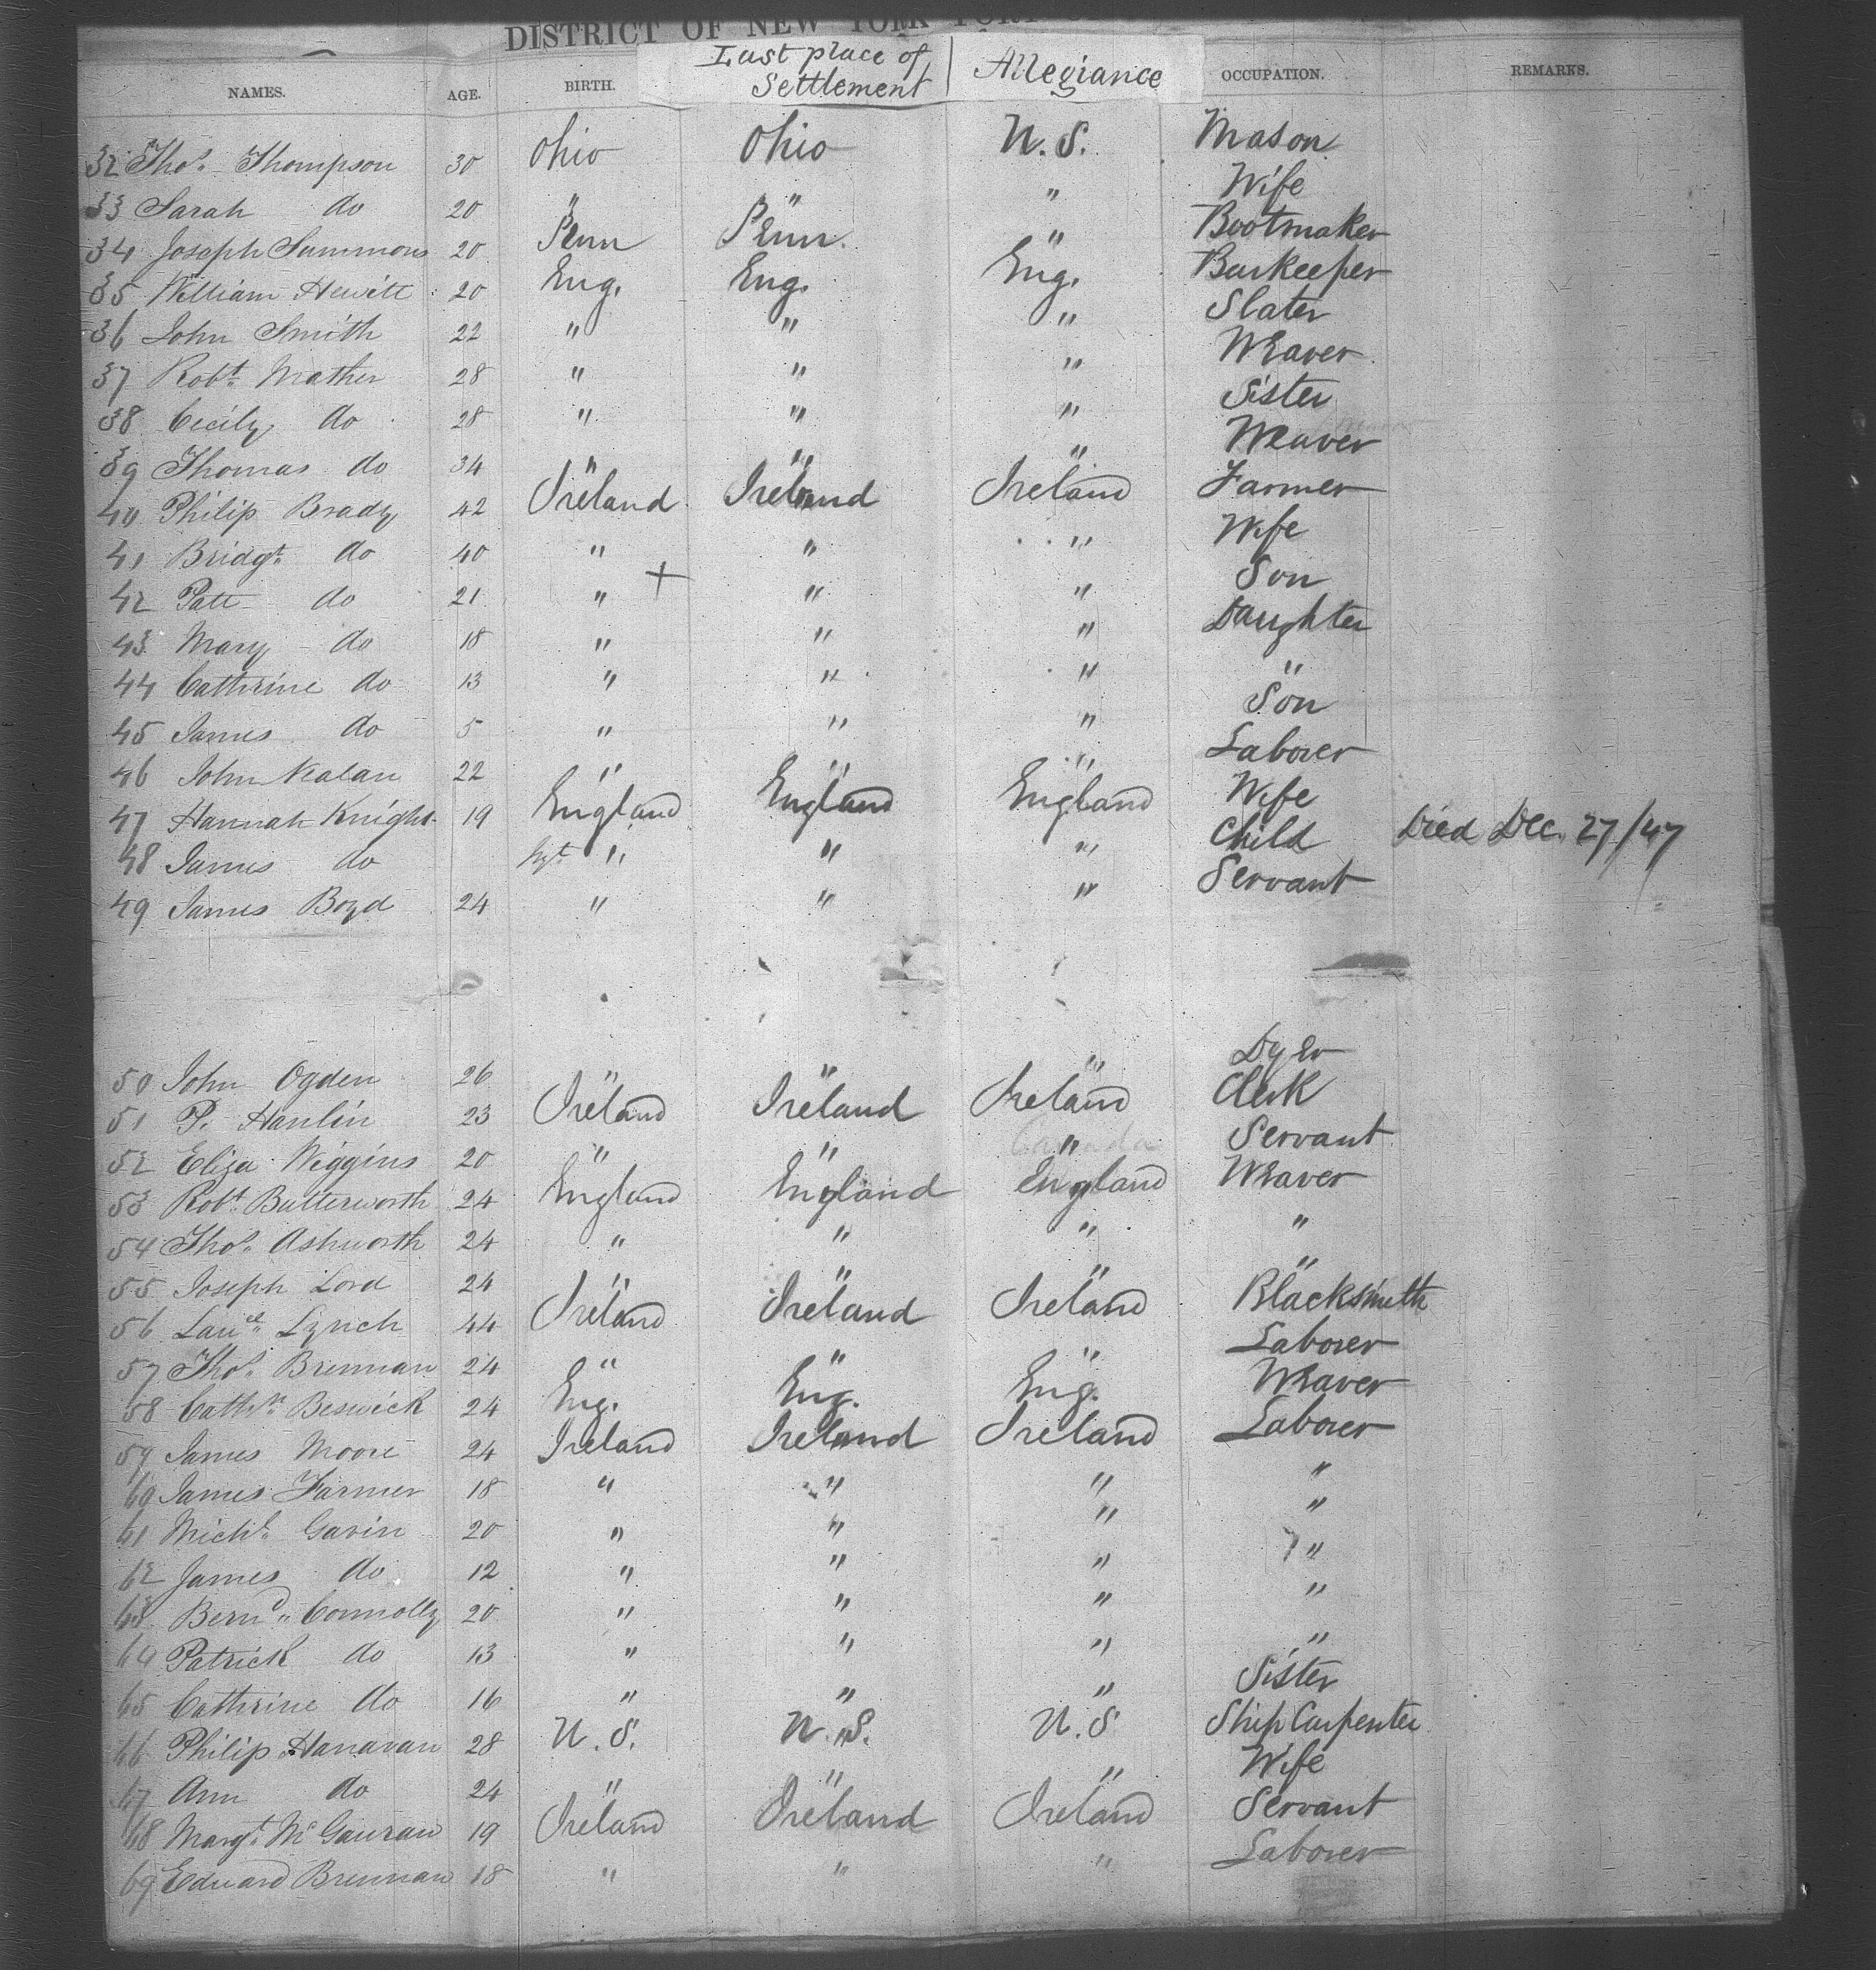 DISTRICT OF NEW YORK PORT
NAMES. AGE. BIRTH. Last place of Settlement Allegiance OCCUPATION. REMARKS.
32 Thos. Thompson 30 Ohio Ohio U.S. Mason
33 Sarah do 20 " " " Wife
34 Joseph Summons 20 Penn Penn. " Bootmaker
35 William Hewitt 20 Eng. Eng. Eng. Barkeeper
36 John Smith 22 " " " Slater
37 Robt. Mather 28 " " " Weaver
38 Cecily do 28 " " " Sister
39 Thomas do 34 " " " Weaver
40 Philip Brady 42 Ireland Ireland Ireland Farmer
41 Bridgt. do 40 " " " Wife
42 Patt do 21 " + " " Son
43 Mary do 18 " " " Daughter
44 Cathrine do 13 " " " "
45 James do 5 " " " Son
46 John Nealan 22 " " " Laborer
47 Hannah Knight 19 England England England Wife
48 James do Inft " " " Child Died Dec. 27/47
49 James Boyd 24 " " " Servant
50 John Ogden 26 " " " Dyer
51 P. Hanlin 23 Ireland Ireland Ireland Clerk
52 Eliza Wiggins 20 " " " Servant
53 Robt. Butterworth 24 England England England Weaver
54 Thos. Ashworth 24 " " " "
55 Joseph Lord 24 " " " "
56 Laure. Lynch 44 Ireland Ireland Ireland Blacksmith
57 Thos. Brennan 24 " " " Laborer
58 Cathn. Beswick 24 Eng. Eng. Eng. Weaver
59 James Moore 24 Ireland Ireland Ireland Laborer
60 James Farmer 18 " " " "
61 Michl. Gavin 20 " " " "
62 James do 12 " " " "
63 Bernd. Connolly 20 " " " "
64 Patrick do 13 " " " "
65 Cathrine do 16 " " " Sister
66 Philip Hanavan 28 U.S. U.S. U.S Ship Carpenter
67 Ann do 24 " " " Wife
68 Margt. McGauran 19 Ireland Ireland Ireland Servant
69 Edward Brennan 18 " " " Laborer